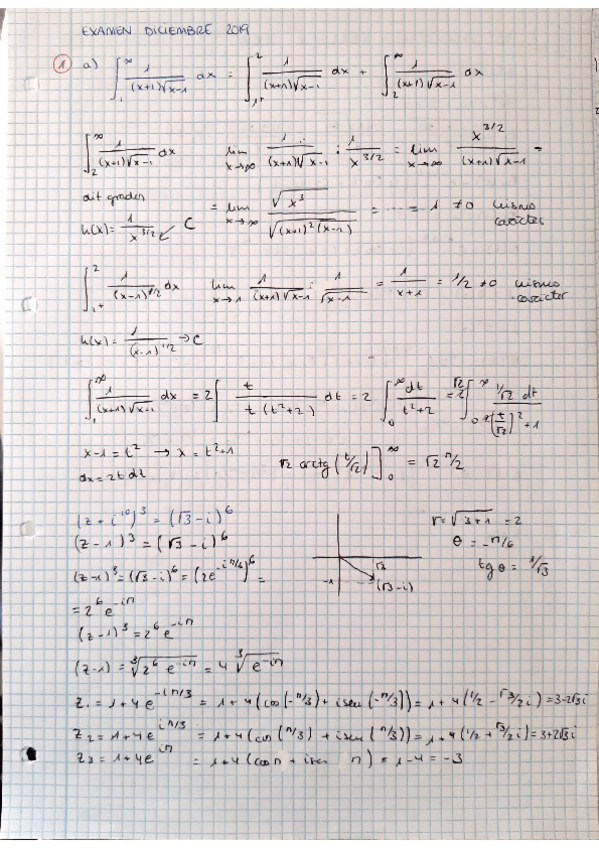 EXAMEN DICIEMBRE 2019
① a) ∫₁^∞ 1/((x+1)√x-1) dx = ∫₁₊² 1/((x+1)√x-1) dx + ∫₂^∞ 1/((x+1)√x-1) dx
∫₂^∞ 1/((x+1)√x-1) dx lim x→∞ 1/((x+1)√x-1) : 1/x^3/2 = lim x→∞ x^3/2/((x+1)√x-1) =
dif grados = lim x→∞ √x³/√(x+1)²(x-1) = ... = 1 ≠0 mismo carácter
h(x)= 1/x^3/2 C
∫₁₊² 1/(x-1)^1/2 dx lim x→1 1/((x+1)√x-1) : 1/√x-1 = 1/(x+1) = 1/2 ≠0 mismo carácter
h(x)= 1/(x-1)^1/2 → C
∫₁^∞ 1/((x+1)√x-1) dx = 2∫ t/(t(t²+2)) dt = 2 ∫₀^∞ dt/(t²+2) = √2/2 ∫₀^∞ 1/√2 dt/((t/√2)²+1)
x-1 = t² → x = t²+1 √2 arctg(t/√2)]₀^∞ = √2 π/2
dx = 2t dt
(z + i^10)³ = (√3 - i)^6
(z - 1)³ = (√3 - i)^6
(z-1)³ = (√3-i)^6 = (2e^-iπ/6)^6 =
= 2^6 e^-iπ
(z-1)³ = 2^6 e^-iπ
√3
-1
(√3-i)
r = √3+1 = 2
θ = -π/6
tg θ = 1/√3
(z-1) = ³√2^6 e^-iπ = 4 ³√e^-iπ
z₁ = 1+4e^-iπ/3 = 1+4(cos(-π/3) + i sen(-π/3)) = 1+4(1/2 - √3/2 i) = 3-2√3i
z₂ = 1+4e^iπ/3 = 1+4(cos(π/3) + i sen(π/3)) = 1+4(1/2 + √3/2 i) = 3+2√3i
z₃ = 1+4e^iπ = 1+4(cos π + i sen π) = 1-4 = -3